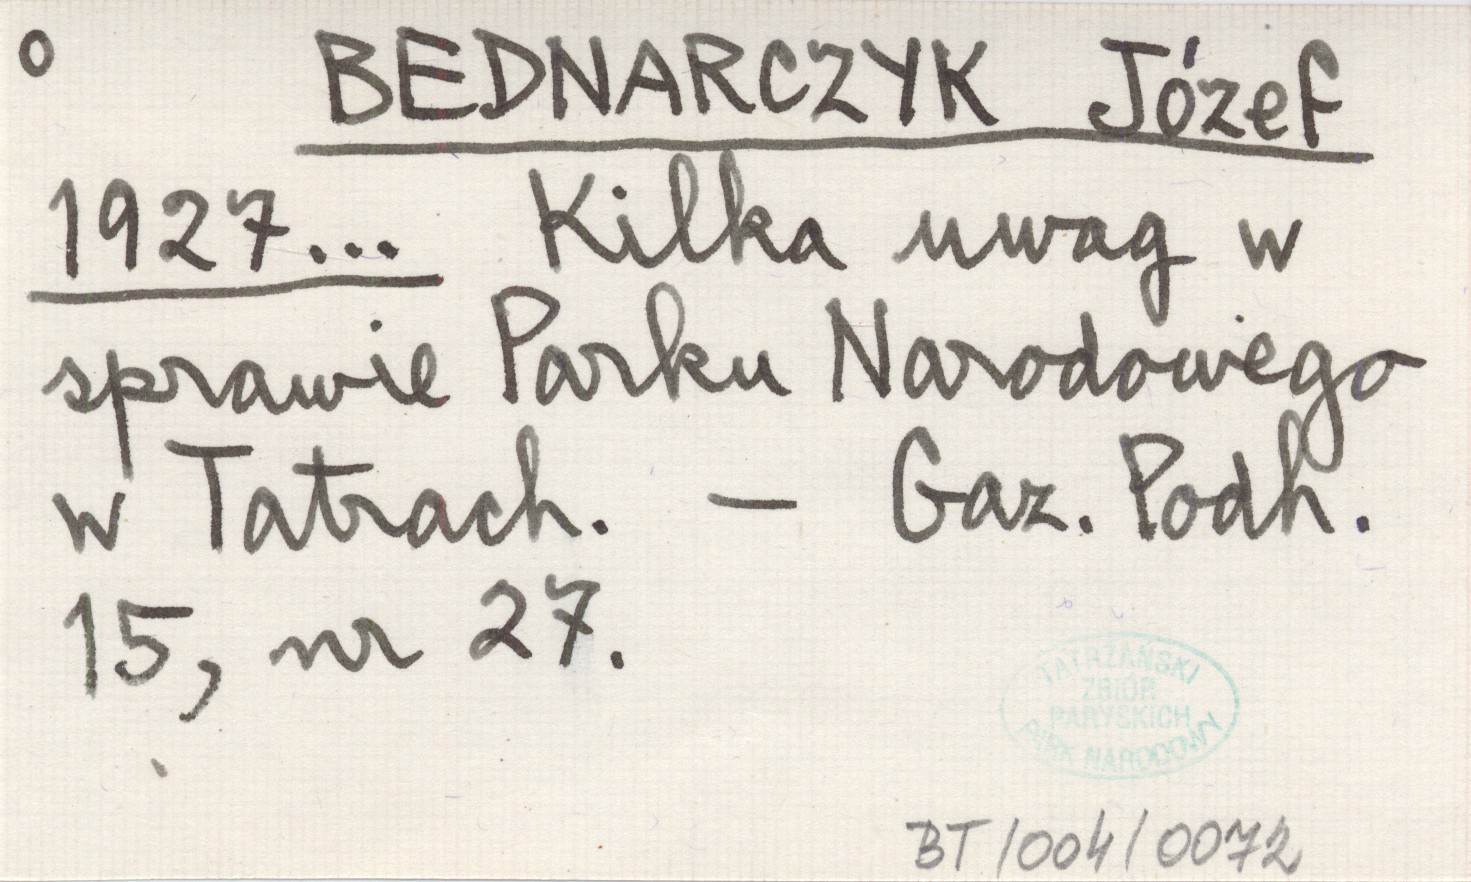 o BEDNARCZYK Józef
1927... Kilka uwag w
sprawie Parku Narodowego
w Tatrach. — Gaz. Podh.
15, nr 27.
TATRZAŃSKI
ZBIÓR
PARYSKICH
PARK NARODOWY
BT/004/0072